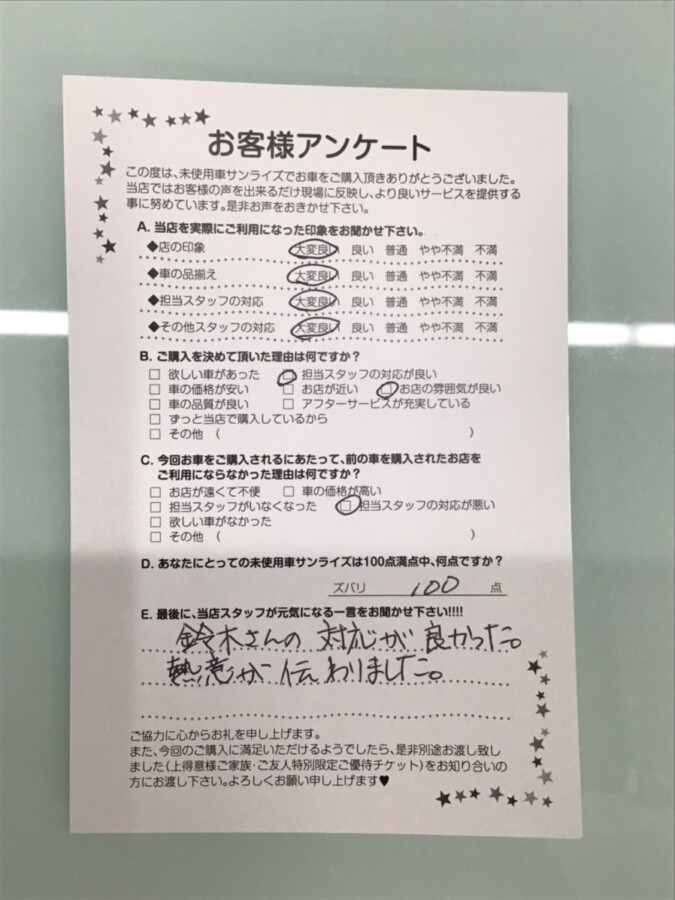 お客様アンケート
この度は、未使用車サンライズでお車をご購入頂きありがとうございました。
当店ではお客様の声を出来るだけ現場に反映し、より良いサービスを提供する
事に努めています。是非お声をおきかせ下さい。
A. 当店を実際にご利用になった印象をお聞かせ下さい。
◆店の印象 大変良い 良い 普通 やや不満 不満
◆車の品揃え 大変良い 良い 普通 やや不満 不満
◆担当スタッフの対応 大変良い 良い 普通 やや不満 不満
◆その他スタッフの対応 大変良い 良い 普通 やや不満 不満
B. ご購入を決めて頂いた理由は何ですか?
□ 欲しい車があった □ 担当スタッフの対応が良い
□ 車の価格が安い □ お店が近い □ お店の雰囲気が良い
□ 車の品質が良い □ アフターサービスが充実している
□ ずっと当店で購入しているから
□ その他 ( )
C. 今回お車をご購入されるにあたって、前の車を購入されたお店を
ご利用にならなかった理由は何ですか?
□ お店が遠くて不便 □ 車の価格が高い
□ 担当スタッフがいなくなった □ 担当スタッフの対応が悪い
□ 欲しい車がなかった
□ その他 ( )
D. あなたにとっての未使用車サンライズは100点満点中、何点ですか?
ズバリ 100 点
E. 最後に、当店スタッフが元気になる一言をお聞かせ下さい!!!!
鈴木さんの対応が良かった。
熱意が伝わりました。
ご協力に心からお礼を申し上げます。
また、今回のご購入に満足いただけるようでしたら、是非別途お渡し致し
ました(上得意様ご家族・ご友人特別限定ご優待チケット)をお知り合いの
方にお渡し下さい。よろしくお願い申し上げます♥